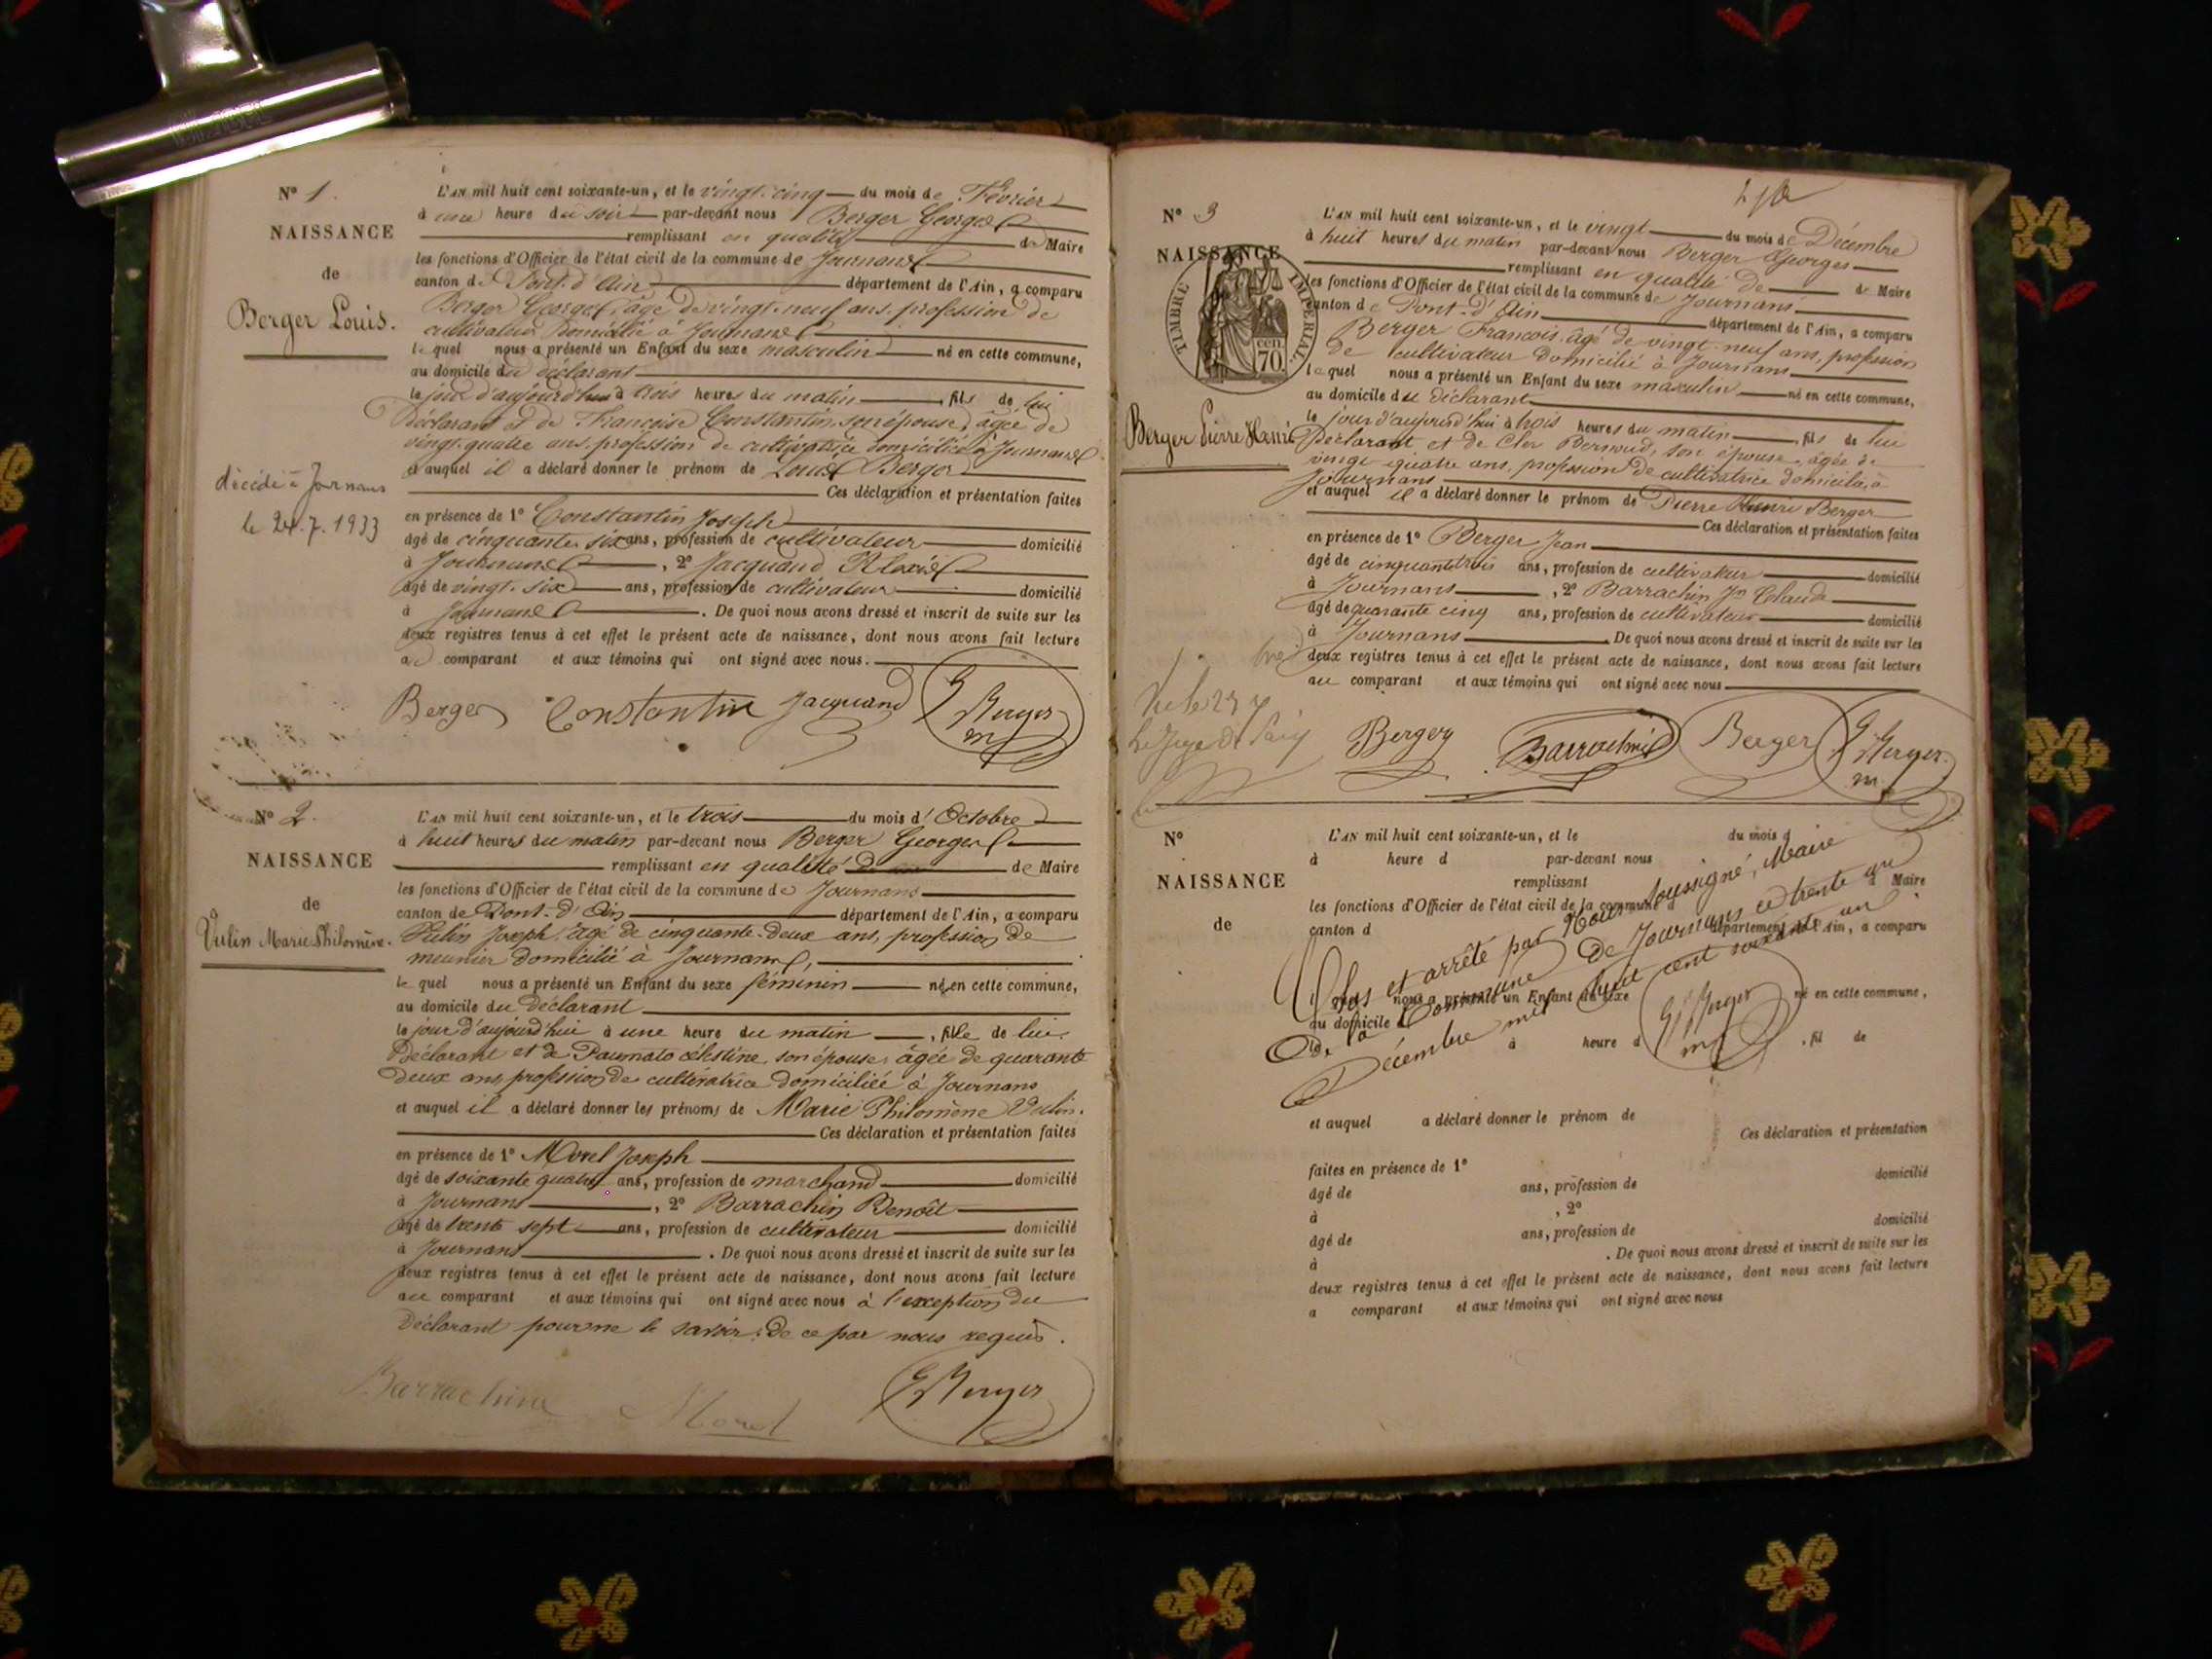 N° 1.
NAISSANCE
de
Berger Louis.
décédé à Journans
le 24.7.1933
L'AN mil huit cent soixante-un, et le vingt-cinq du mois de Février
à une heure du soir par-devant nous Berger Georges
remplissant en qualité de Maire
les fonctions d'Officier de l'état civil de la commune de Journans
canton de Pont-d'Ain département de l'Ain, a comparu
Berger Georges, âgé de vingt-neuf ans, profession de
cultivateur domicilié à Journans
lequel nous a présenté un Enfant du sexe masculin né en cette commune,
au domicile du déclarant
le jour d'aujourd'hui à trois heures du matin, fils de lui
Déclarant et de Françoise Constantin, son épouse, âgée de
vingt-quatre ans, profession de cultivatrice domiciliée à Journans
et auquel il a déclaré donner le prénom de Louis Berger
Ces déclaration et présentation faites
en présence de 1° Constantin Joseph
âgé de cinquante six ans, profession de cultivateur domicilié
à Journans, 2° Jacquand Alexis
âgé de vingt-six ans, profession de cultivateur domicilié
à Journans. De quoi nous avons dressé et inscrit de suite sur les
deux registres tenus à cet effet le présent acte de naissance, dont nous avons fait lecture
au comparant et aux témoins qui ont signé avec nous.
Berger Constantin Jacquand G Berger
m
N° 2.
NAISSANCE
de
Vulin Marie Philomène.
L'AN mil huit cent soixante-un, et le trois du mois d'Octobre
à huit heures du matin par-devant nous Berger Georges
remplissant en qualité de Maire
les fonctions d'Officier de l'état civil de la commune de Journans
canton de Pont-d'Ain département de l'Ain, a comparu
Vulin Joseph, âgé de cinquante-deux ans, profession de
meunier domicilié à Journans,
lequel nous a présenté un Enfant du sexe féminin né en cette commune,
au domicile du Déclarant
le jour d'aujourd'hui à une heure du matin, fille de lui
Déclarant et de célestine, son épouse, âgée de quarante
deux ans, profession de cultivatrice domiciliée à Journans
et auquel il a déclaré donner les prénoms de Marie Philomène Vulin.
Ces déclaration et présentation faites
en présence de 1° Morel Joseph
âgé de soixante quatre ans, profession de marchand domicilié
à Journans, 2° Barrachin Benoît
âgé de trente sept ans, profession de cultivateur domicilié
à Journans. De quoi nous avons dressé et inscrit de suite sur les
deux registres tenus à cet effet le présent acte de naissance, dont nous avons fait lecture
au comparant et aux témoins qui ont signé avec nous à l'exception du
Déclarant pour ne le savoir, de ce par nous requis.
Barrachin Morel G Berger
N° 3
NAISSANCE
TIMBRE IMPÉRIAL
cen
70.
Berger Pierre Henri
L'AN mil huit cent soixante-un, et le vingt du mois de Décembre
à huit heures du matin par-devant nous Berger Georges
remplissant en qualité de de Maire
les fonctions d'Officier de l'état civil de la commune de Journans
canton de Pont-d'Ain département de l'Ain, a comparu
Berger François, âgé de vingt-neuf ans, profession
de cultivateur domicilié à Journans
lequel nous a présenté un Enfant du sexe masculin né en cette commune,
au domicile du déclarant
le jour d'aujourd'hui à trois heures du matin, fils de lui
Déclarant et de son épouse, âgée de
vingt quatre ans, profession de cultivatrice domiciliée à
Journans
et auquel il a déclaré donner le prénom de Pierre Henri Berger
Ces déclaration et présentation faites
en présence de 1° Berger Jean
âgé de cinquante trois ans, profession de cultivateur domicilié
à Journans, 2° Barrachin Jn Claude
âgé de quarante cinq ans, profession de cultivateur domicilié
à Journans. De quoi nous avons dressé et inscrit de suite sur les
deux registres tenus à cet effet le présent acte de naissance, dont nous avons fait lecture
au comparant et aux témoins qui ont signé avec nous
Le Juge de Paix
Berger Barrachin Berger G Berger
m
N°
NAISSANCE
de
L'AN mil huit cent soixante-un, et le du mois d
à heure d par-devant nous
remplissant d Maire
les fonctions d'Officier de l'état civil de la commune d
canton d département de l'Ain, a comparu
quel nous a présenté un Enfant du sexe né en cette commune,
au domicile d
le à heure d , fil de
Clos et arrêté par Nous soussigné, Maire
De la Commune de Journans ce trente un
Décembre mil huit cent soixante un.
G Berger
m
et auquel a déclaré donner le prénom de
Ces déclaration et présentation
faites en présence de 1°
âgé de ans, profession de domicilié
à , 2°
âgé de ans, profession de domicilié
à . De quoi nous avons dressé et inscrit de suite sur les
deux registres tenus à cet effet le présent acte de naissance, dont nous avons fait lecture
a comparant et aux témoins qui ont signé avec nous